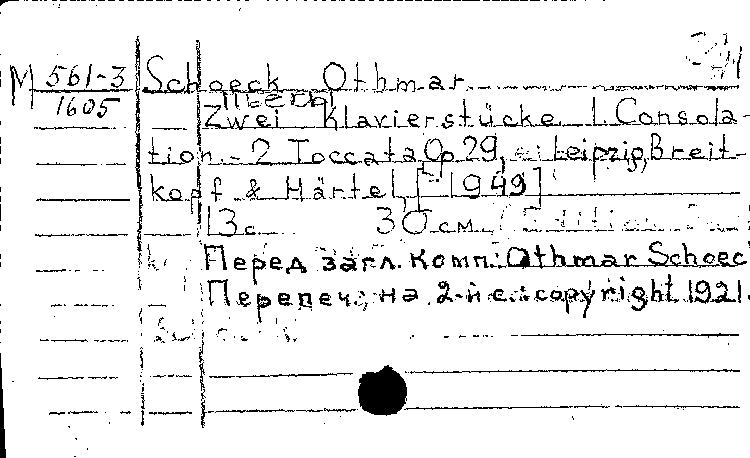 М 561-3 Schoeck Othmar
1605
Zwei Klavierstücke 1. Consola-
tion.-2 Toccata Op 29, Leipzig, Breit-
kopf & Härtel, [1949]
13 с 30 см (Edition
Перед загл. комп.: Othmar Schoec
Перепеч.; на 2-й с.: copyright 1921.